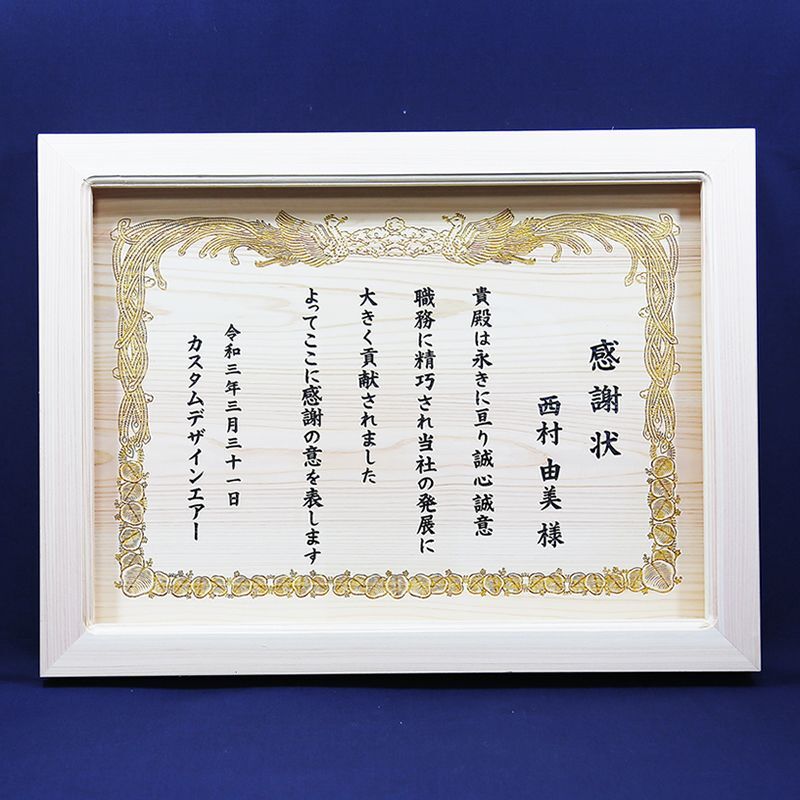 感謝状
西村 由美 様
貴殿は永きに亘り誠心誠意
職務に精巧され当社の発展に
大きく貢献されました
よってここに感謝の意を表します
令和三年三月三十一日
カスタムデザインエアー